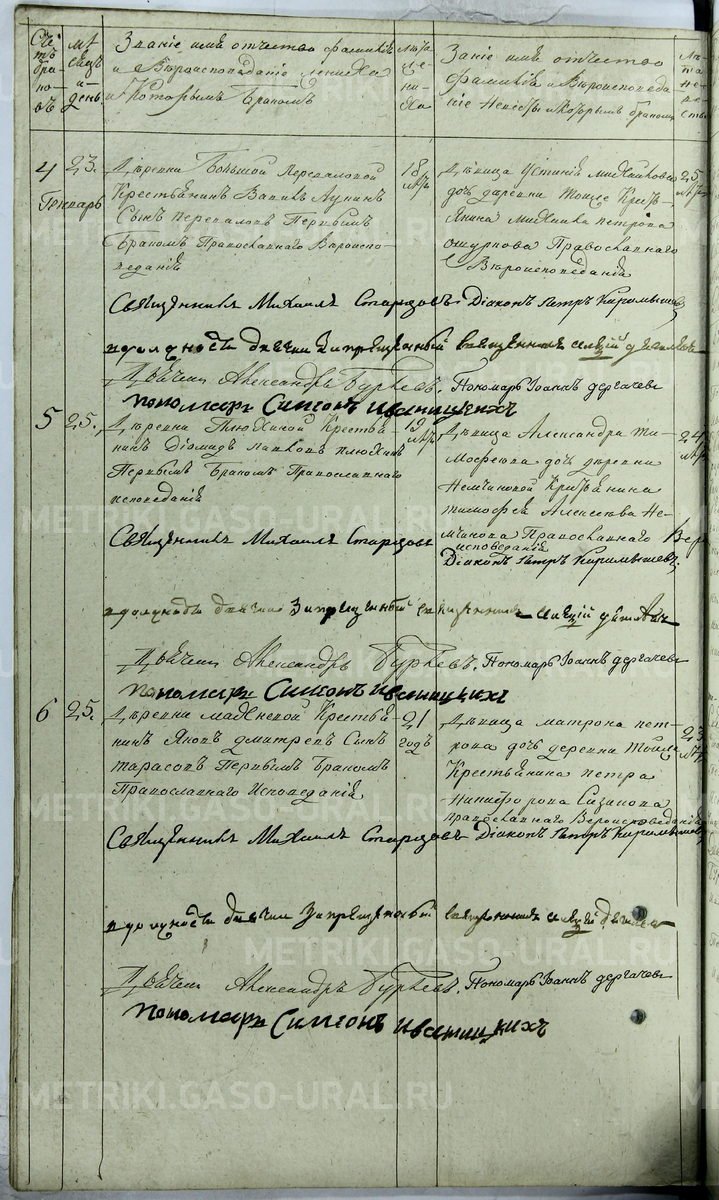 Счетъ браковъ
Мѣсяцъ и день
Званіе имя отчество фамилія
и Вѣроисповѣданіе жениха
и Которымъ бракомъ
Лѣта жениха
Званіе имя отчество
фамилія и Вѣроисповѣда
ніе Невѣсты и Которымъ бракомъ
Лѣта невѣсты
4
23.
Генварь
Деревни Большой Переваловой
Крестьянинъ
Сынъ Переваловъ Первымъ
бракомъ Православнаго Вѣроиспо-
веданія
18
лѣтъ
Дѣвица Устинія Михайлова
дочь деревни Кресть-
янина Михаила петрова
ошуркова Православнаго
Вѣроисповеданія
25
лѣтъ
Священникъ Михаилъ Старцовъ. Діаконъ петръ Кирпышевъ
в должности дьячка Запрещенный священникъ
Дьячекъ Александръ Гурьевъ. Пономарь Іоаннъ дергачевъ
пономарь Симеонъ Иваницкихъ
5
25.
Деревни Плюхиной Крестья-
нинъ Діомидъ плюхинъ
Первымъ бракомъ Православнаго
исповеданія
19
лѣтъ
Дѣвица Александра Ти-
мофеева дочь деревни
Немчиновой Крестьянина
тимофея Алексеева Не-
мчинова Православнаго Вѣро
исповеданія
24
Священникъ Михаилъ Старцовъ
Діаконъ петръ Кирпышевъ
в должности дьячка Запрещенный священникъ
Дьячекъ Александръ Гурьевъ. Пономарь Іоаннъ дергачевъ
пономарь Симеонъ Иваницкихъ
6
25.
Деревни Махневой Крестья-
нинъ Яковъ дмитревъ Сынъ
тарасовъ Первымъ бракомъ
Православнаго Исповеданія
21
годъ
Дѣвица матрона пет-
рова дочь деревни
Крестьянина петра
Никифорова Сазанова
православнаго Вероисповеданія
23
Священникъ Михаилъ Старцовъ Діаконъ петръ Кирпышевъ
в должности дьячка Запрещенный священникъ
Дьячекъ Александръ Гурьевъ. Пономарь Іоаннъ дергачевъ
пономарь Симеонъ Иваницкихъ
METRIKI.GASO-URAL.RU